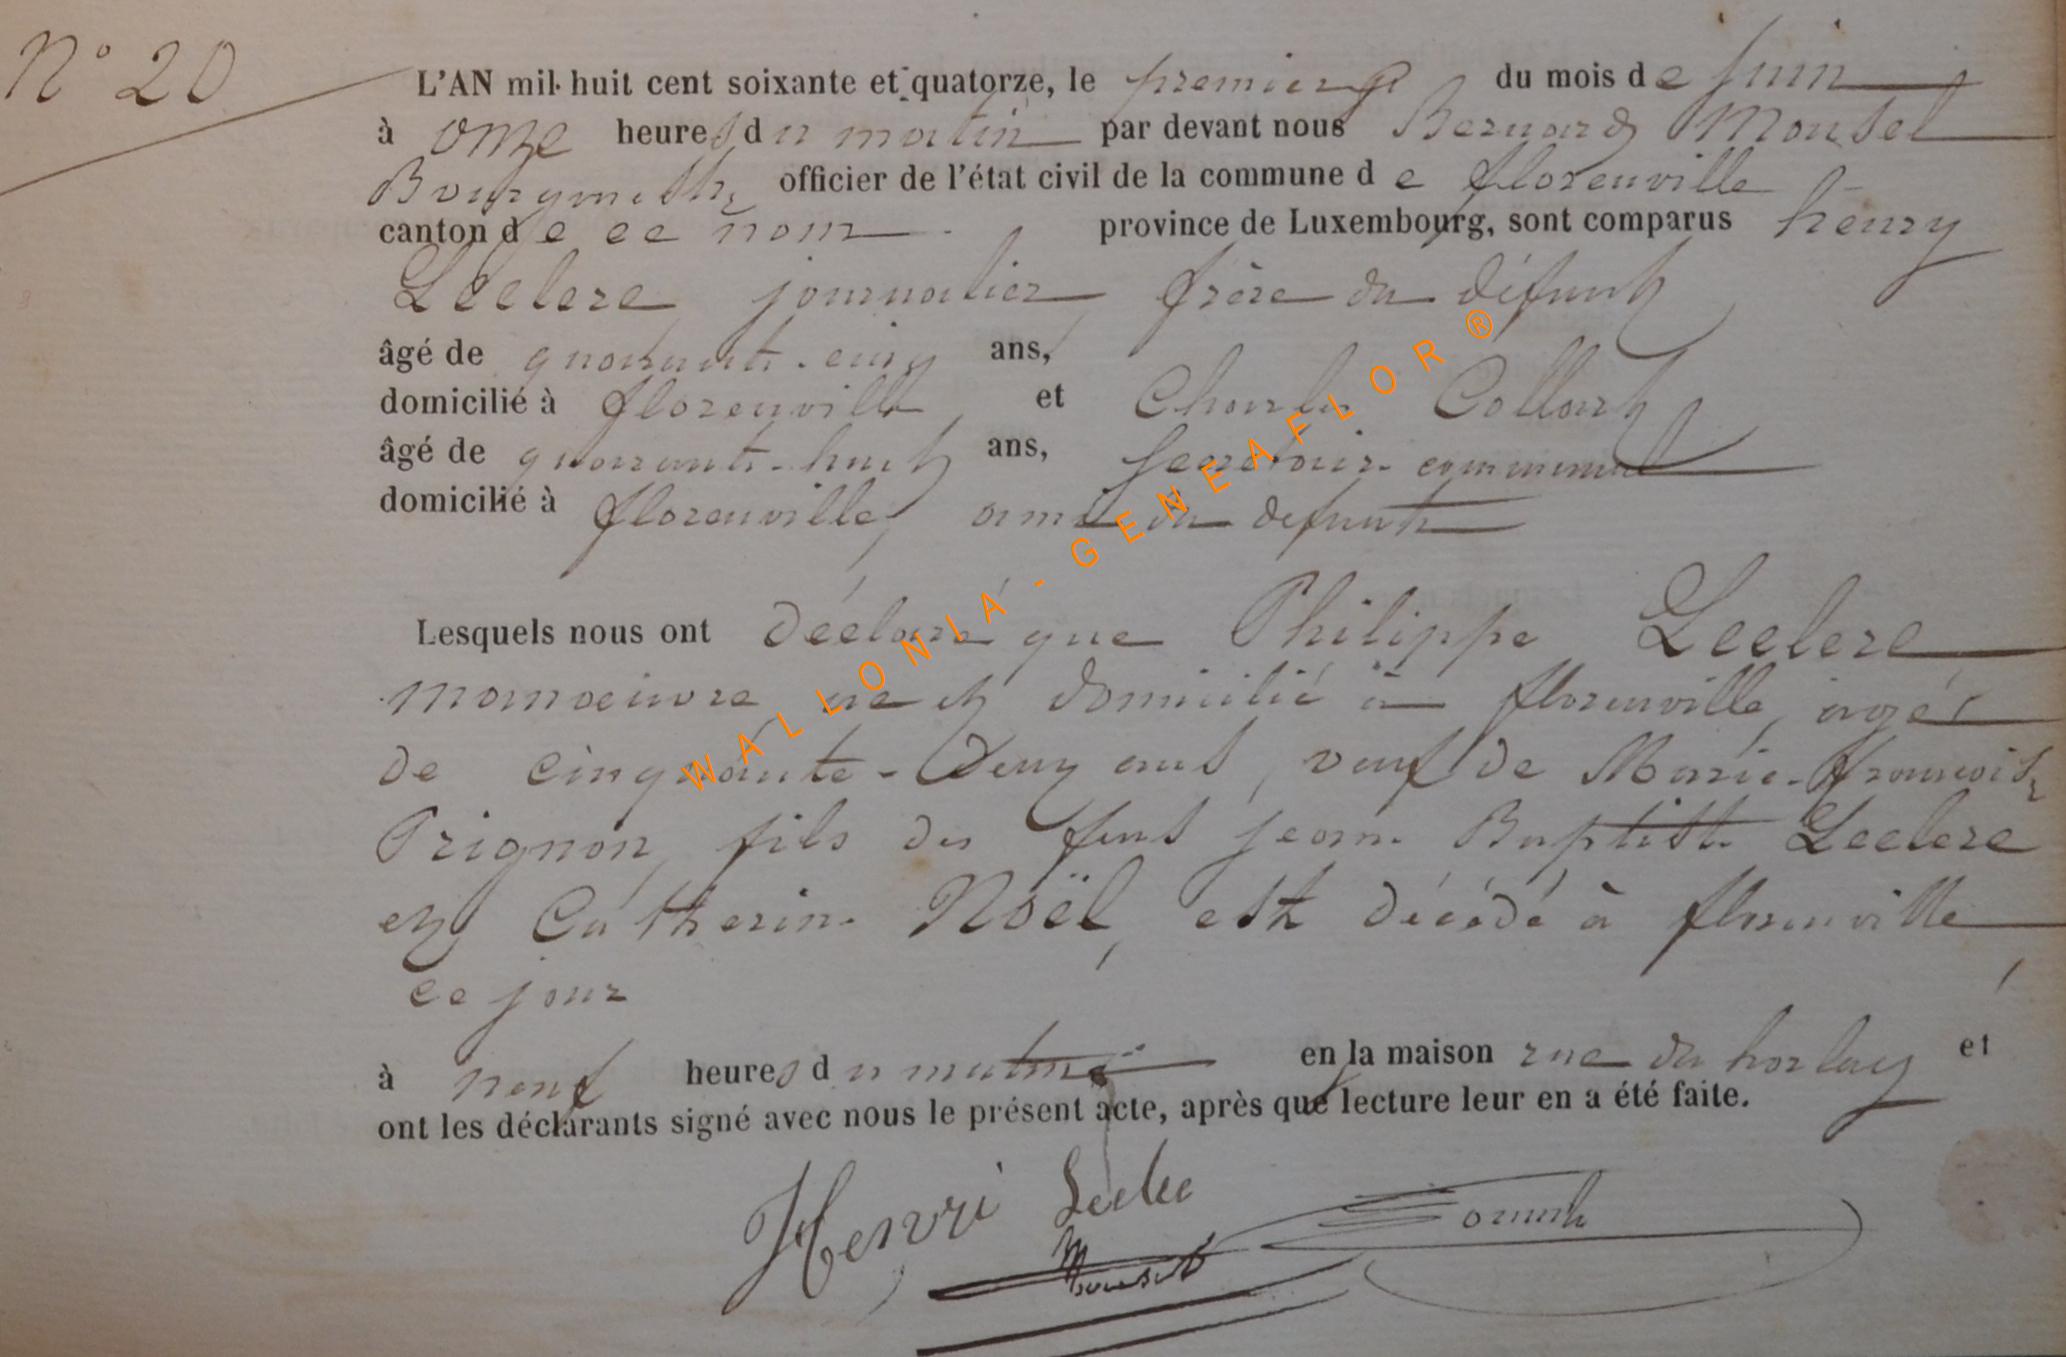 N° 20
L'AN mil huit cent soixante et quatorze, le premier du mois de juin
à onze heures du matin par devant nous Bernard Monsel
Bourgmestre officier de l'état civil de la commune de florenville
canton de ce nom province de Luxembourg, sont comparus henry
Leclere journalier, frère du défunt
âgé de quarante-cinq ans,
domicilié à florenville, et Charles Collart
âgé de quarante-huit ans, communal
domicilié à florenville, ami du defunt
Lesquels nous ont déclaré que Philippe Leclere
manoeuvre, né et domicilié à florenville, agé
de cinquante-deux ans, veuf de Marie-françoise
Prignon, fils des feus jean Baptiste Leclere
et Catherine Noël, est décédé à florenville,
ce jour
à neuf heures du matin en la maison rue du et
ont les déclarants signé avec nous le présent acte, après que lecture leur en a été faite.
Henri
Monsel
WALLONIA-GENEAFLOR®